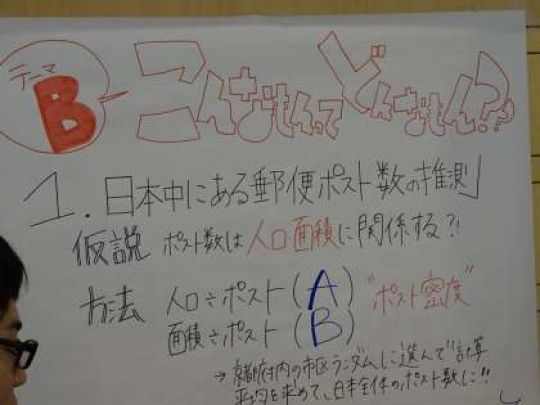 テーマ
B
こんなもんって どんなもん??
1. 日本中にある郵便ポスト数の推測」
仮説 ポスト数は人口面積に関係する?!
方法 人口÷ポスト(A) "ポスト密度"
面積÷ポスト(B)
→京都府内の市区ランダムに選んで計算
平均を求めて、日本全体のポスト数に!!